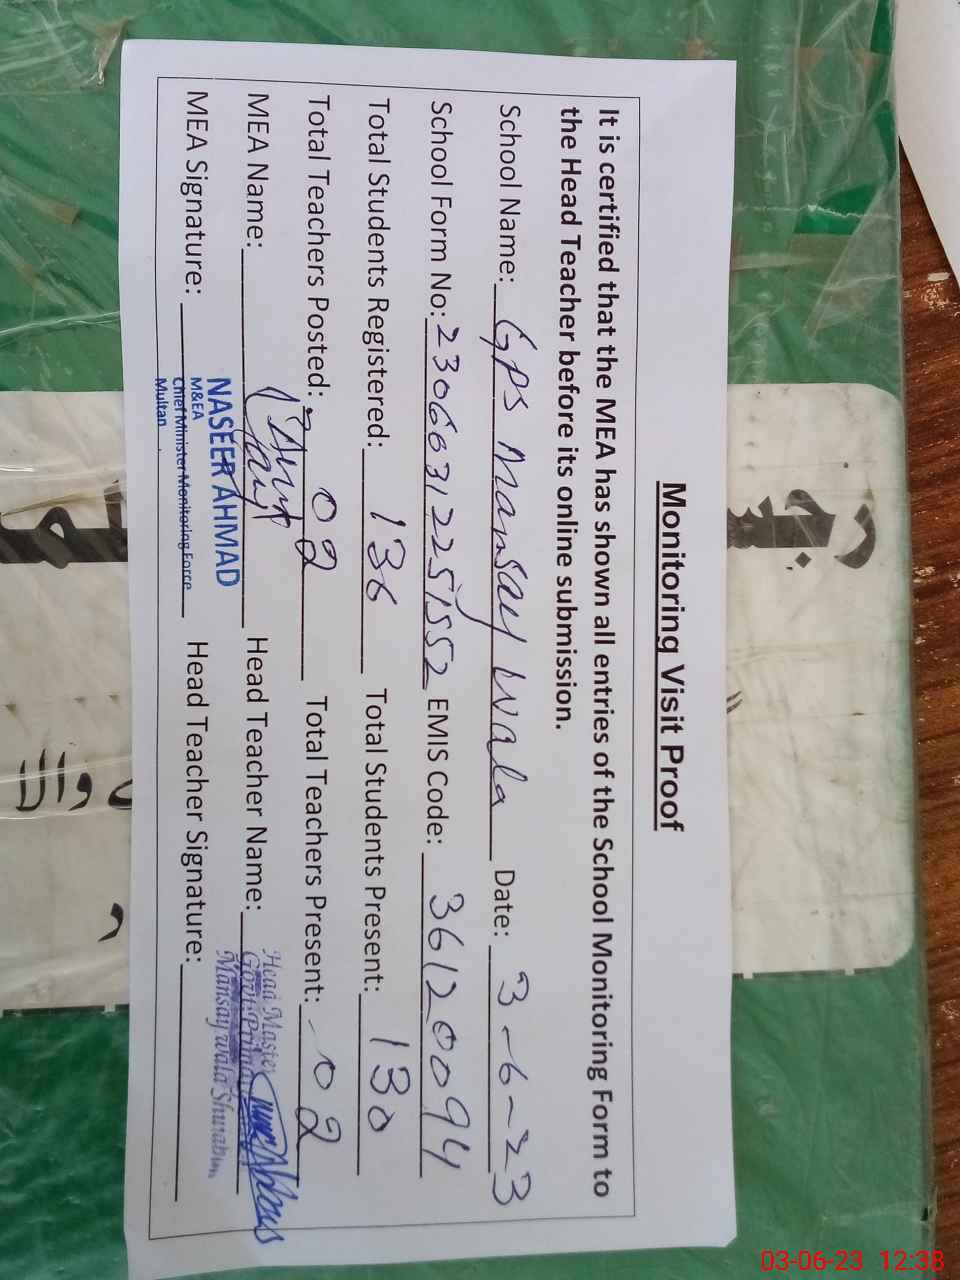 Monitoring Visit Proof
It is certified that the MEA has shown all entries of the School Monitoring Form to
the Head Teacher before its online submission.
School Name: GPS Mansay Wala Date: 3-6-23
School Form No: 23066312251552 EMIS Code: 36120094
Total Students Registered: 136 Total Students Present: 130
Total Teachers Posted: 02 Total Teachers Present: 02
MEA Name: Head Teacher Name:
NASEER AHMAD
M&EA
Chief Minister Monitoring Force
Multan
Head Master
Govt. Primary
Mansay wala Shujabad
MEA Signature: Head Teacher Signature:
03-06-23 12:38